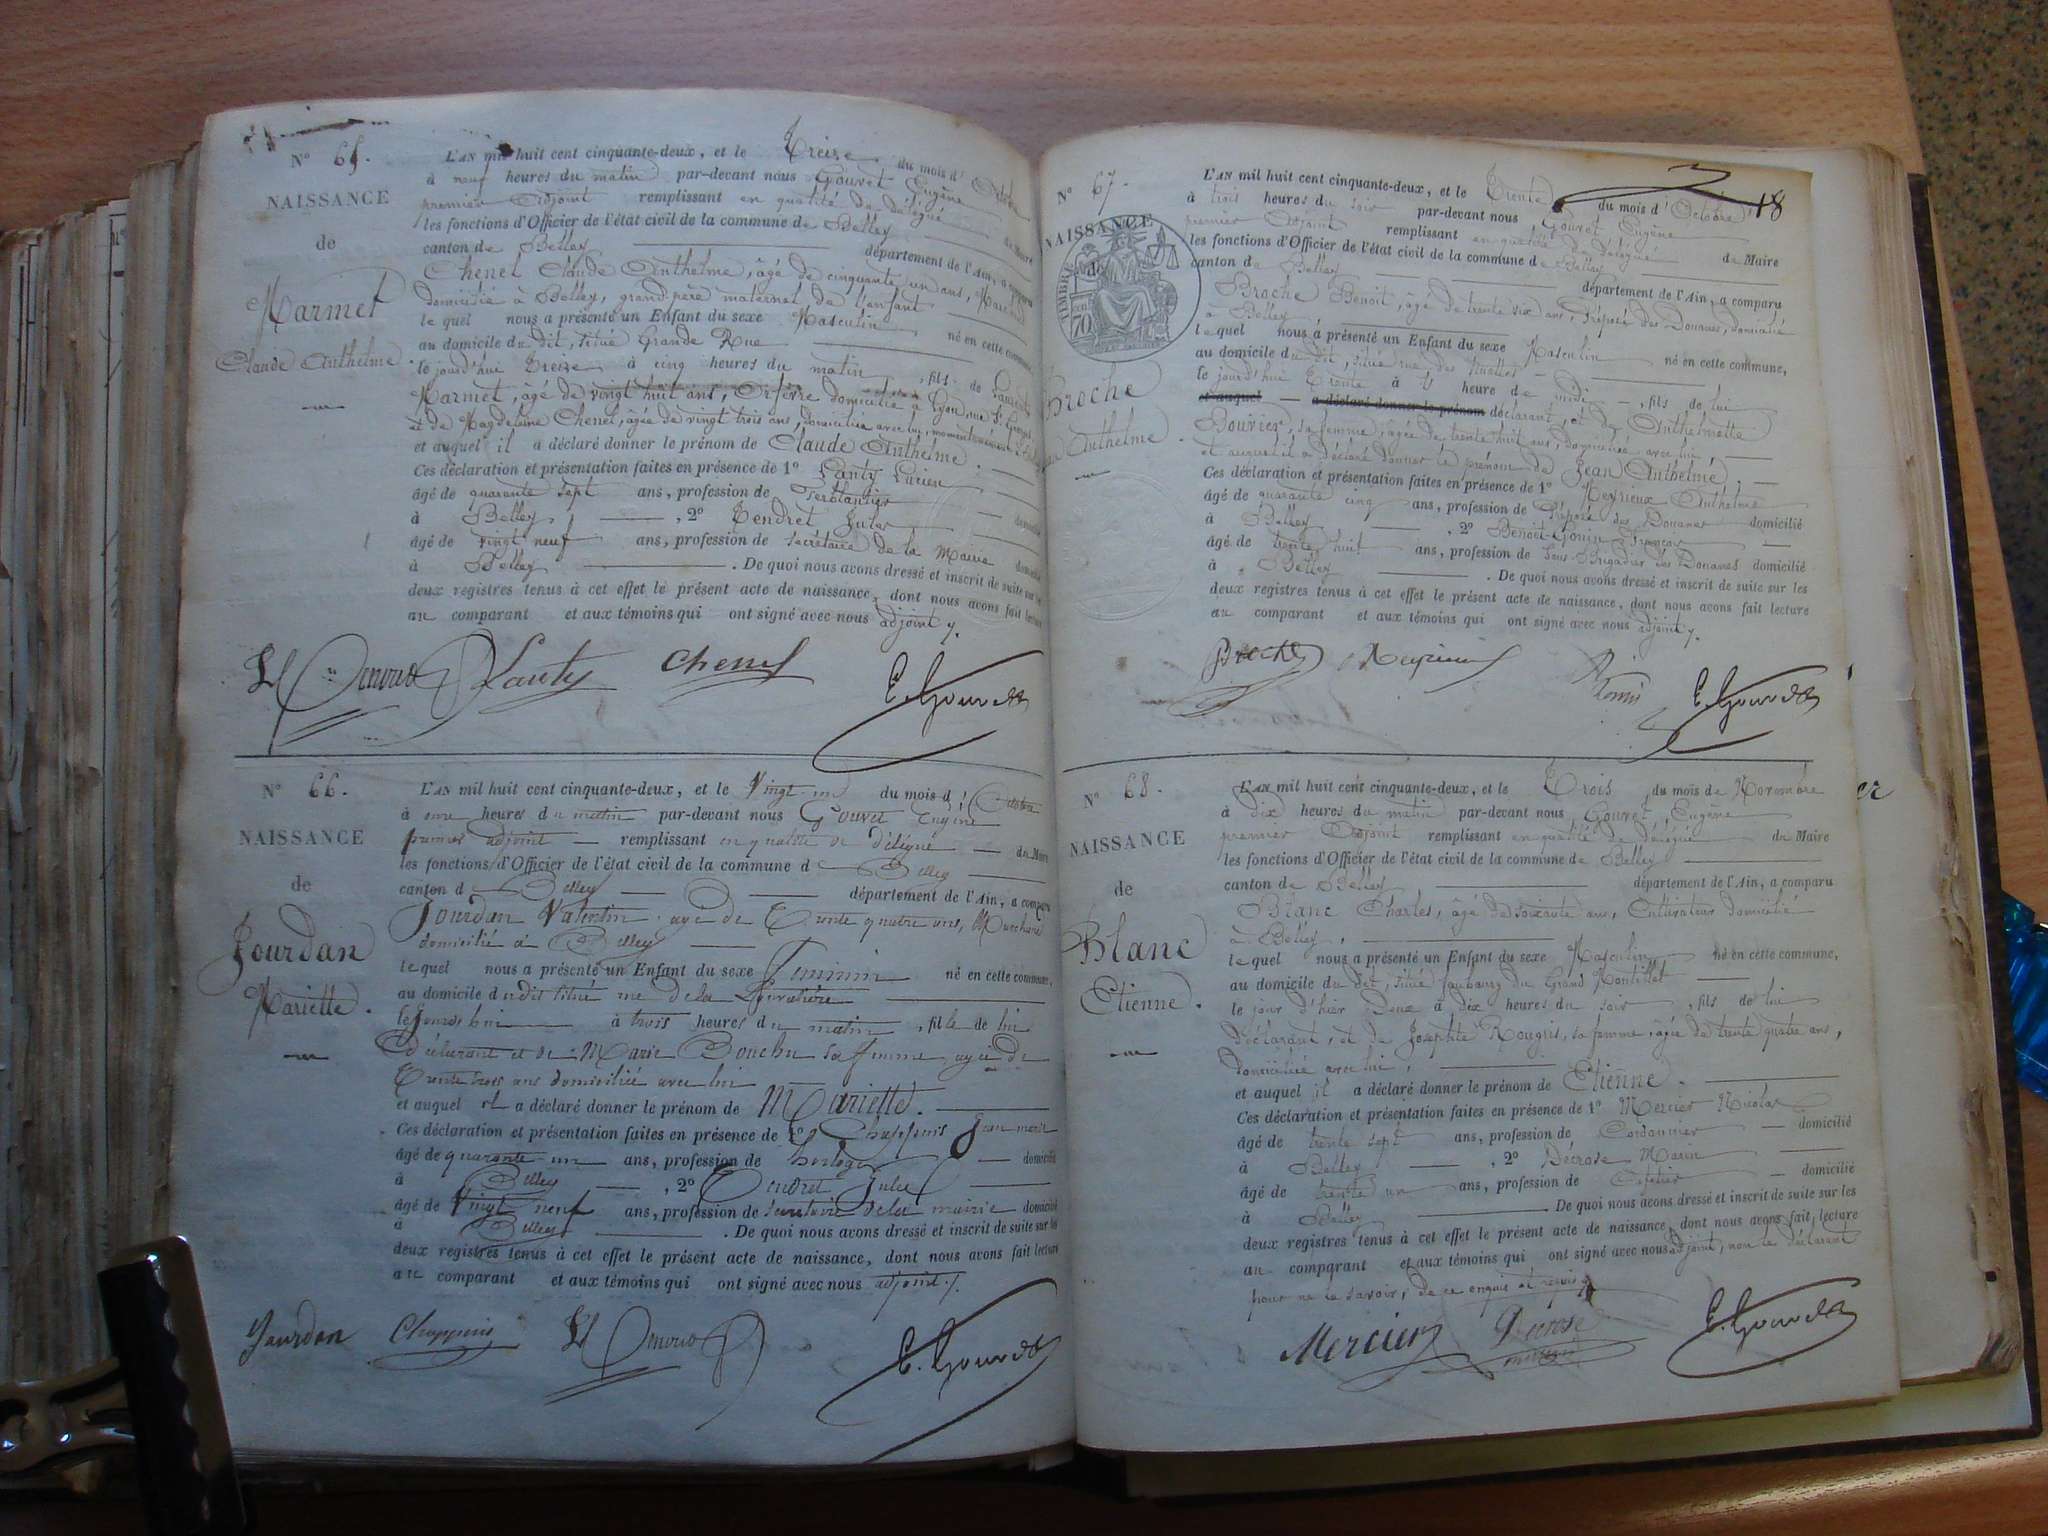 N° 65.
NAISSANCE
de
Marmet
Claude Anthelme.
L'AN mil huit cent cinquante-deux, et le Treize du mois d'Octobre
à neuf heures du matin par-devant nous Gouvet Eugène
premier Adjoint remplissant en qualité de délégué du Maire
les fonctions d'Officier de l'état civil de la commune de Belley
canton de Belley département de l'Ain, a comparu
Chenel Claude Anthelme, âgé de cinquante un ans, Marchand
domicilié à Belley, grand-père maternel de l'enfant
lequel nous a présenté un Enfant du sexe Masculin né en cette commune,
au domicile du dit, situé Grande Rue
le jourd'hui Treize à cinq heures du matin, fils de Laurent
Marmet, âgé de vingt huit ans, Orfèvre domicilié à Lyon rue St. Georges
et de Magdeleine Chenel, âgée de vingt trois ans, domiciliée avec lui, momentanément à Belley
et auquel il a déclaré donner le prénom de Claude Anthelme.
Ces déclaration et présentation faites en présence de 1° Lanty Lucien
âgé de quarante sept ans, profession de Ferblantier domicilié
à Belley, 2° Tendret Jules
âgé de vingt neuf ans, profession de secrétaire de la Mairie domicilié
à Belley. De quoi nous avons dressé et inscrit de suite sur les
deux registres tenus à cet effet le présent acte de naissance, dont nous avons fait lecture
au comparant et aux témoins qui ont signé avec nous adjoint
Lanty Chenel E. Gouvet
N° 66.
NAISSANCE
de
Jourdan
Mariette.
L'AN mil huit cent cinquante-deux, et le Vingt un du mois d'Octobre
à onze heures du matin par-devant nous Gouvet Eugène
premier adjoint remplissant en qualité de délégué du Maire
les fonctions d'Officier de l'état civil de la commune de Belley
canton de Belley département de l'Ain, a comparu
Jourdan Valentin âgé de Trente quatre ans, Marchand
domicilié à Belley
lequel nous a présenté un Enfant du sexe Feminin né en cette commune,
au domicile dudit situé rue de la
le jourdhui à trois heures du matin, fille de lui
déclarant et de Marie Bouchu sa femme, agée de
Trente trois ans domiciliée avec lui
et auquel il a déclaré donner le prénom de Mariette.
Ces déclaration et présentation faites en présence de 1° Chappuis Jean marie
âgé de quarante un ans, profession de horloger domicilié
à Belley, 2° Tendret Jules
âgé de Vingt neuf ans, profession de secrétaire de la mairie domicilié
à Belley. De quoi nous avons dressé et inscrit de suite sur les
deux registres tenus à cet effet le présent acte de naissance, dont nous avons fait lecture
au comparant et aux témoins qui ont signé avec nous adjoint
Jourdan Chappuis E. Gouvet
18
N° 67.
NAISSANCE
de
TIMBRE
70
Broche
Jean Anthelme.
L'AN mil huit cent cinquante-deux, et le Trente du mois d'Octobre
à trois heures du soir par-devant nous Gouvet Eugène
premier Adjoint remplissant en qualité de délégué du Maire
les fonctions d'Officier de l'état civil de la commune de Belley
canton de Belley département de l'Ain, a comparu
Broche Benoit, âgé de trente six ans, Préposé des Douanes, domicilié
à Belley
lequel nous a présenté un Enfant du sexe Masculin né en cette commune,
au domicile du dit, situé rue des
le jourd'hui Trente à 1 heure de midi, fils de lui
et auquel a déclaré donner le prénom déclarant, et de Anthelmette
Bouvier, sa femme, âgée de trente huit ans, domiciliée avec lui,
et auquel il a déclaré donner le prénom de Jean Anthelme,
Ces déclaration et présentation faites en présence de 1° Meyrieux Anthelme
âgé de quarante cinq ans, profession de Préposé des Douanes domicilié
à Belley, 2° Benoit-Gonin François
âgé de trente huit ans, profession de Sous-Brigadier des Douanes domicilié
à Belley. De quoi nous avons dressé et inscrit de suite sur les
deux registres tenus à cet effet le présent acte de naissance, dont nous avons fait lecture
au comparant et aux témoins qui ont signé avec nous adjoint
Broche Meyrieux E. Gouvet
N° 68.
NAISSANCE
de
Blanc
Etienne.
L'AN mil huit cent cinquante-deux, et le Trois du mois de Novembre
à dix heures du matin par-devant nous, Gouvet, Eugène
premier Adjoint remplissant en qualité de délégué du Maire
les fonctions d'Officier de l'état civil de la commune de Belley
canton de Belley département de l'Ain, a comparu
Blanc Charles, âgé de soixante ans, Cultivateur domicilié
à Belley,
lequel nous a présenté un Enfant du sexe Masculin né en cette commune,
au domicile du dit, situé faubourg du Grand Montillet
le jour d'hier Deux à dix heures du soir, fils de lui
déclarant, et de Josephte Rougris, sa femme, âgée de trente quatre ans,
domiciliée avec lui,
et auquel il a déclaré donner le prénom de Etienne.
Ces déclaration et présentation faites en présence de 1° Mercier Nicolas
âgé de trente sept ans, profession de Cordonnier domicilié
à Belley, 2° Décrose Marin
âgé de trente un ans, profession de Cafetier domicilié
à Belley. De quoi nous avons dressé et inscrit de suite sur les
deux registres tenus à cet effet le présent acte de naissance, dont nous avons fait lecture
au comparant et aux témoins qui ont signé avec nous adjoint, non le déclarant
pour ne le savoir, de ce enquis et requis
Mercier Decrose E. Gouvet
er